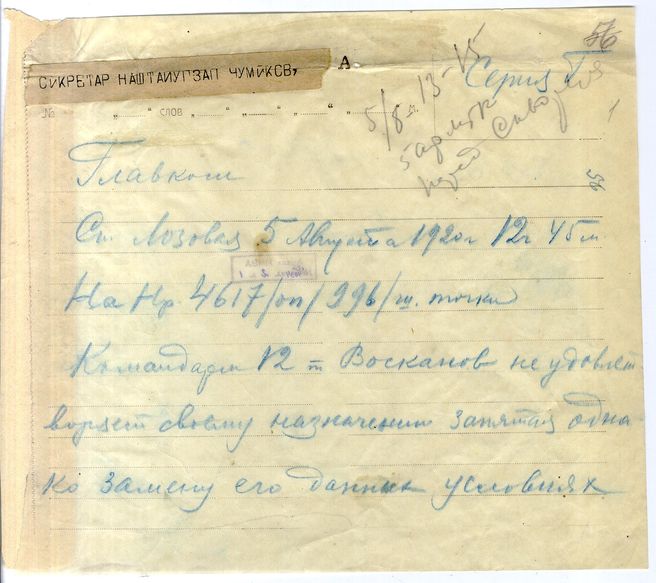 56
А Серия Г
СИКРЕТАР НАШТАИУГЗАП ЧУМИКСВ,
5/8-13-15
№ „ “ СЛОВ „ “ „ “ „ “
1
Главком
25
Ст. Лозовая 5 Августа 1920г 12ч 45м
На Нр 4617/оп/996/ш. точка
Командарм 12 т Восканов не удовлет
воряет своему назначению запятая одна
ко замену его данных условиях